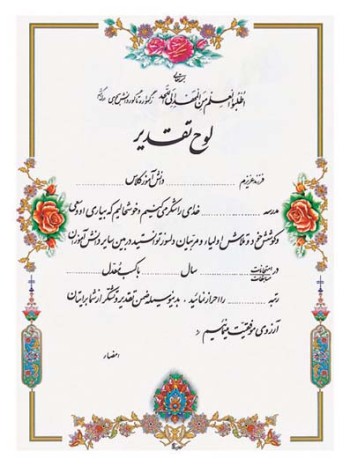 بسمه تعالی
اطلبوا العلم من المهد الی اللحد ز گهواره تا گور دانش بجوی
لوح تقدیر
فرزند عزیزم ........ دانش آموز کلاس ........
مدرسه ........ خدای را شکر می کنیم و خوشحالیم که بیاری او و سعی
و کوشش خود و تلاش اولیاء و مربیان دلسوز توانستید در بین سایر دانش آموزان
در امتحانات مسابقات ........ سال ........ با کسب معدل ........
رتبه ........ را احراز نمائید . بدینوسیله ضمن تقدیر و تشکر از شما برایتان
آرزوی موفقیت مینمائیم
امضاء